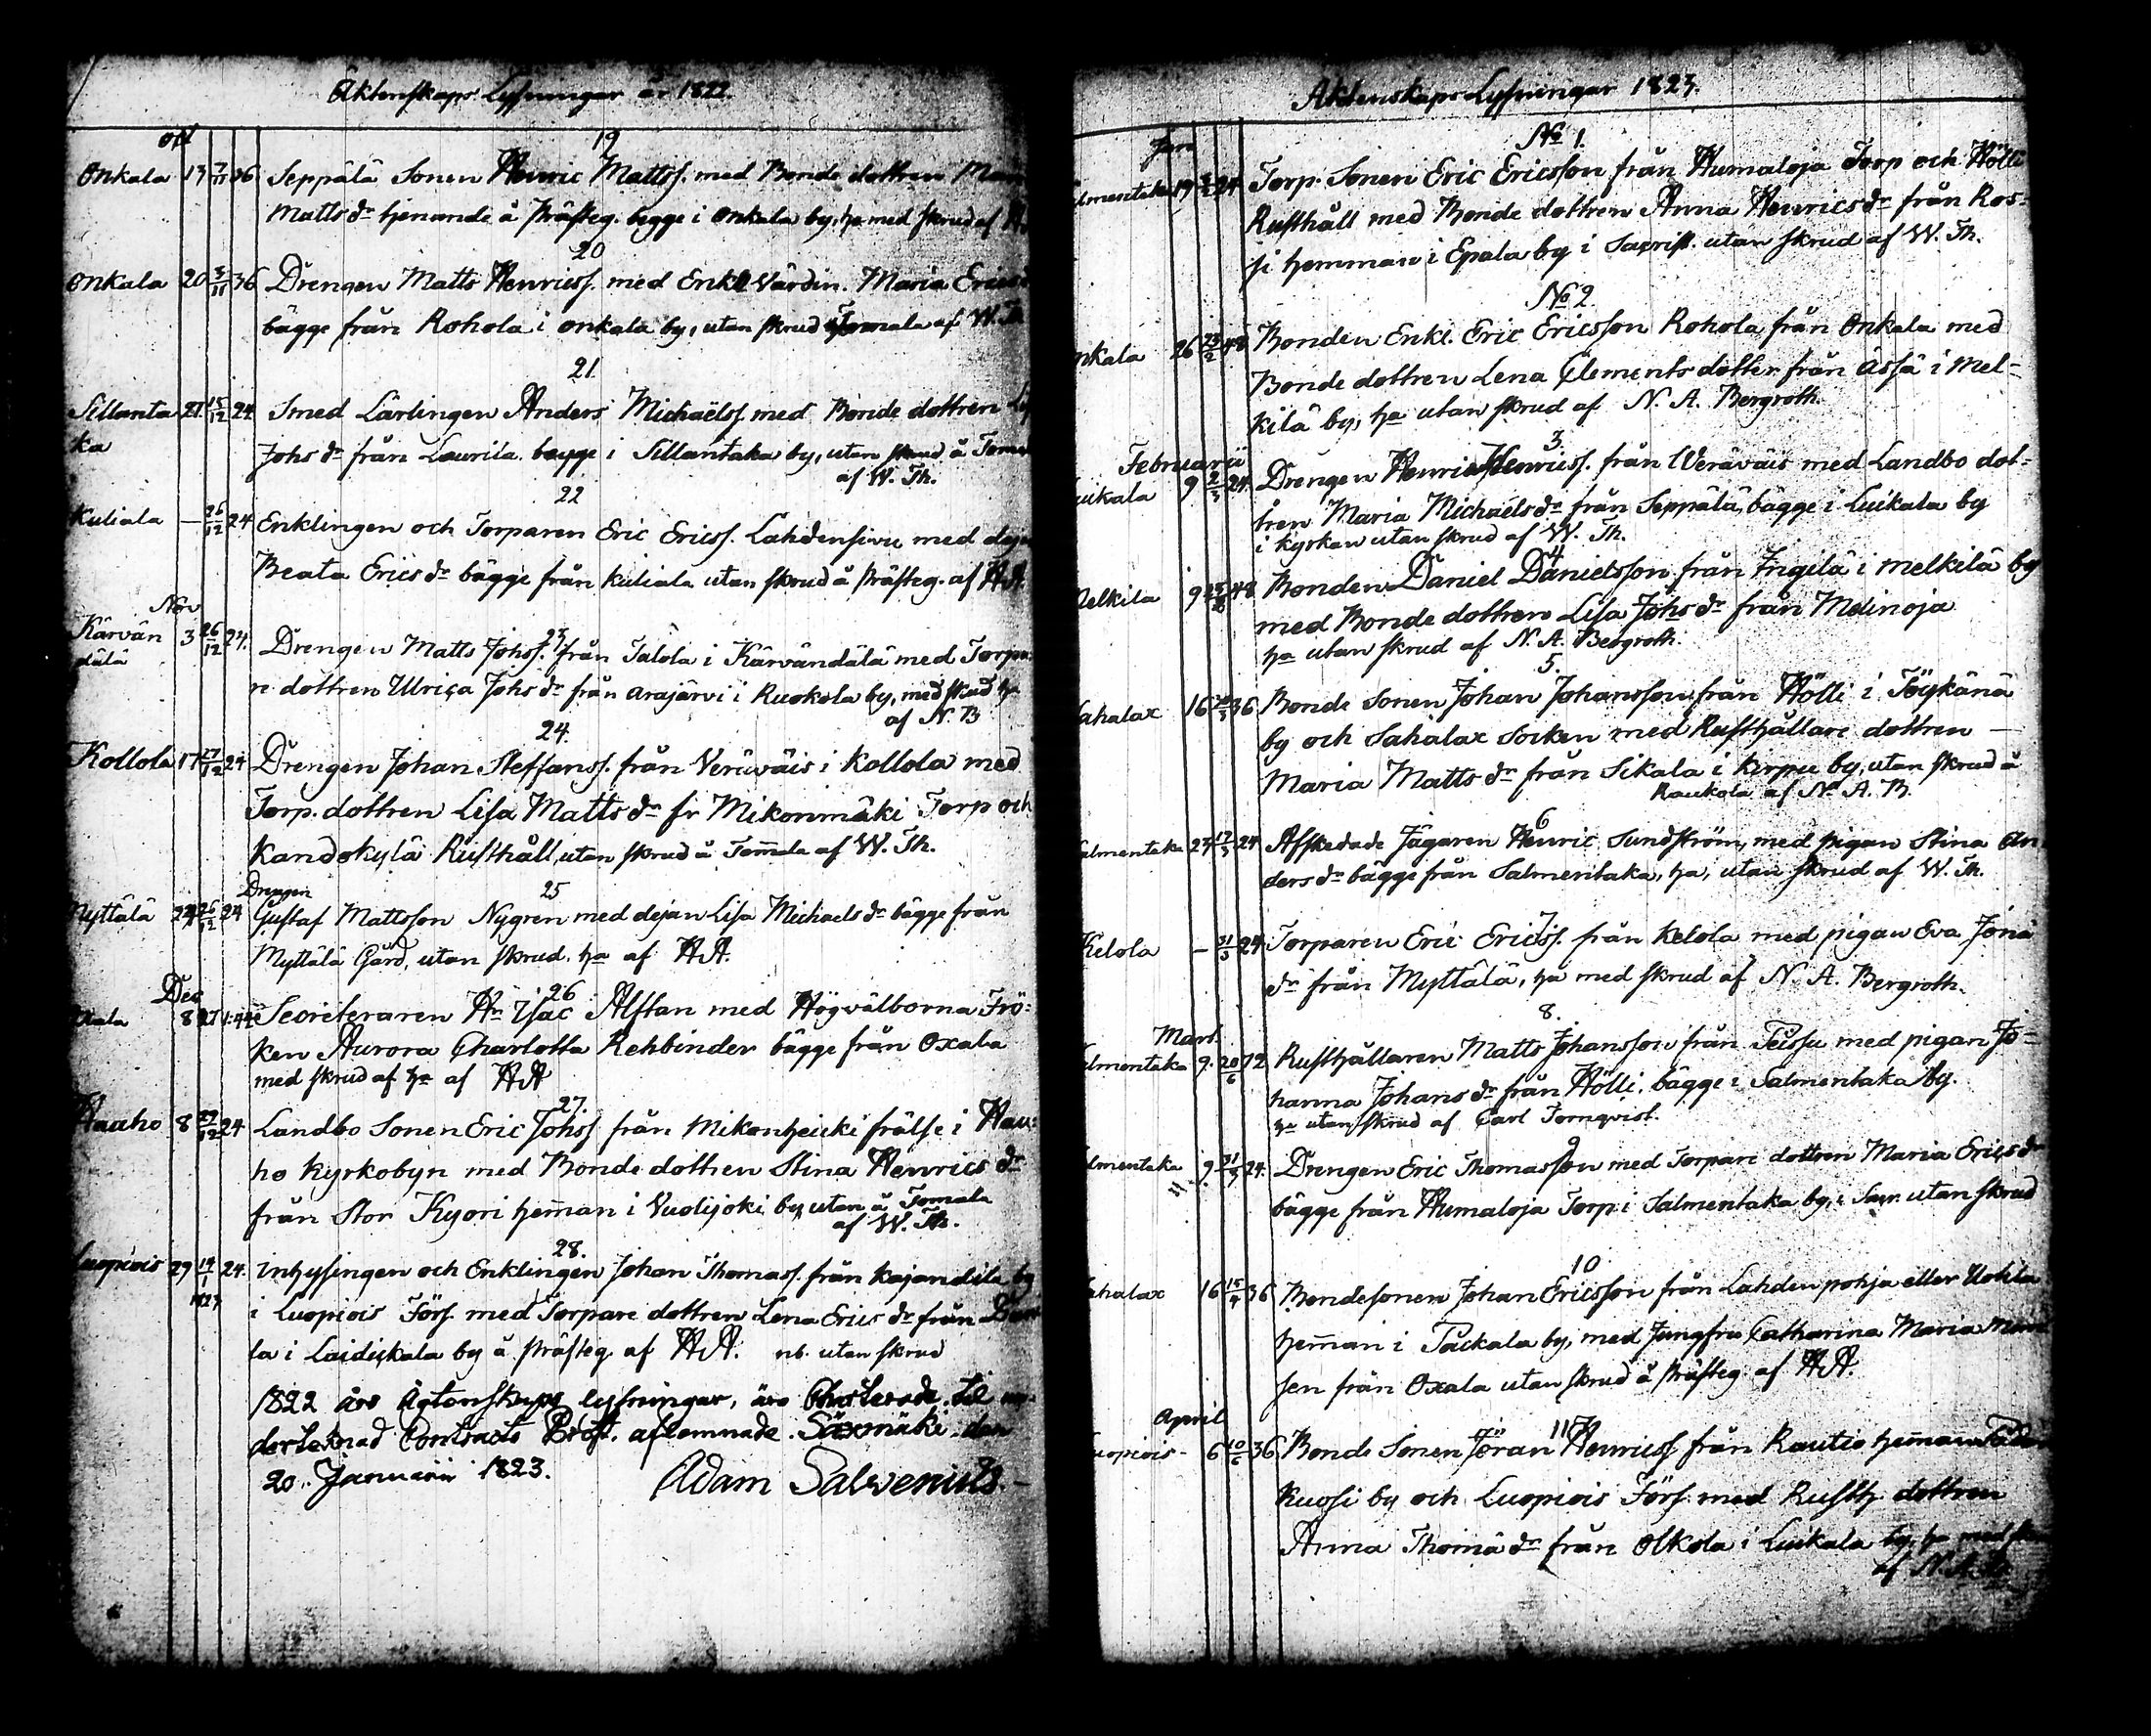 Äktenskaps Lysningar år 1822.
Oct
19
Onkala 13 7/11 36 Seppälä Sonen Henric Mattss. med Bonde dottren
Matts dr tjenande å Prästeg. bägge i Onkala by, ha med skrud af
20
Onkala 20 3/11 36 Drengen Matts Henricss. med Enkl Värdin. Maria Erics
bägge från Rohola i Onkala by, utan skrud Tomala af W. Th
21.
Sillanta 27 15/12 24 Smed Lärlingen Anders Michaëlss. med Bonde dottren
ka
Johs dr från Laurila bägge i Sillantaka by, utan skrud å
af W. Th.
22
Kuliala — 26/12 24 Enklingen och Torparen Eric Ericss. Lahdensivu med
Beata Erics dr bägge från Kuliala utan skrud å Präfteg. af AA.
Nov
23
Kärvän 3 26/12 24. Drengen Matts Johss. från Talola i Kärvändälä med Torpa
dälä
re dottren Ulrica Johs dr från Arajärvi i Ruokola by, med skrud ha
af N. B
24.
Kollola 17 27/12 24 Drengen Johan Steffanss. från Veräväis i Kollola med
Torp. dottren Lisa Matts dr fr Mikonmäki Torp och
Kandokylä Rusthåll, utan skrud å Tomala af W. Th.
Drengen
25
Myttälä 24 26/12 24 Gustaf Mattsson Nygren med dejan Lisa Michaels dr bägge från
Myttälä Gård, utan skrud. ha af AA.
Dec
26
Oxala 8 27 1:44 Secreteraren Hr Isac Alftan med Högvälborna Frö-
ken Aurora Charlotta Rehbinder bägge från Oxala
med skrud af ha af AA
27.
Hauho 8 27/12 24 Landbo Sonen Eric Johss från Mikonheicki frälse i Hau-
ho Kyrkobyn med Bonde dottren Stina Henrics dr
från Stor Kyöri hemman i Vuolijoki by utan å Tomala
af W. Th.
28.
Luopiois 29 14/1 24. Inhysingen och Enklingen Johan Thomass. från Kajandila by
1823
i Luopiois Förs. med Torpare dottren Lena Erics dr från
la i Laidickala by å Prästeg. af AA. nb. utan skrud
1822 års Ägtenskaps lysningar, äro Charterade til un-
dertecknad Contracts Prost. aflemnade. Säxmäki den
20. Januarii 1823. Adam Salvenius.
Äktenskaps Lysningar 1823.
Jan
No 1.
lmentaka 19 24 Torp. Sonen Eric Ericsson från Humaloja Torp och Hölli
Rusthåll med Bonde dottren Anna Henrics dr från Ros-
si hemman i Epala by i Sacrist. utan skrud af W. Th.
No 2.
nkala 26 23/2 48 Bonden Enkl. Eric Ericsson Rohola från Onkala med
Bonde dottren Lena Clements dotter från Ässä i Mel-
kilä by, ha utan skrud af N. A. Bergroth.
Februarii
3.
uikala 9 2/3 24. Drengen Henric Henricss. från Veräväis med Landbo dot-
tren Maria Michaels dr från Seppälä, bägge i Luikala by
i kyrkan utan skrud af W. Th.
4
elkila 9 48 Bonden Daniel Danielsson från Ingilä i Melkilä by
med Bonde dottren Lisa Johs dr från Melinoja
ha utan skrud af N. A. Bergroth.
5.
ahalax 16 36 Bonde Sonen Johan Johansson från Hölli i Töykänä
by och Sahalax Socken med Rusthållare dottren —
Maria Matts dr från Sikala i Kirpu by, utan skrud å
Raukola af N. A. B.
6
almentaka 23 17/3 24 Afskedade Jägaren Henric Sundström, med pigan Stina An
ders dr bägge från Salmentaka, ha, utan skrud af W. Th.
7.
Kelola — 31/3 24 Torparen Eric Ericss. från Kelola med pigan Eva Jona
dr från Myttälä, ha med skrud af N. A. Bergroth.
8.
Mart.
lmentaka 9. 20/6 72 Rusthållaren Matts Johansson från Peissu med pigan Jo-
hanna Johans dr från Hölli, bägge i Salmentaka by.
ha utan skrud af Carl Tornqvist.
9
lmentaka 9 31/3 24. Drengen Eric Thomasson med Torpare dottren Maria Erics dr
bägge från Humaloja Torp i Salmentaka by, i Sacr. utan skrud
10
ahalax 16 15/4 36 Bondesonen Johan Ericsson från Lahdenpohja eller Uohla
heman i Päckala by, med Jungfru Catharina Maria
sen från Oxala utan skrud å Prästeg. af AA.
April
11
uopiois - 6 10/6 36 Bonde Sonen Jöran Henricss från Rautio heman
kuosi by och Luopiois Förs med Rusth dottren
Anna Thomä dr från Olkola i Luikala by, ha med
af N. A. B.